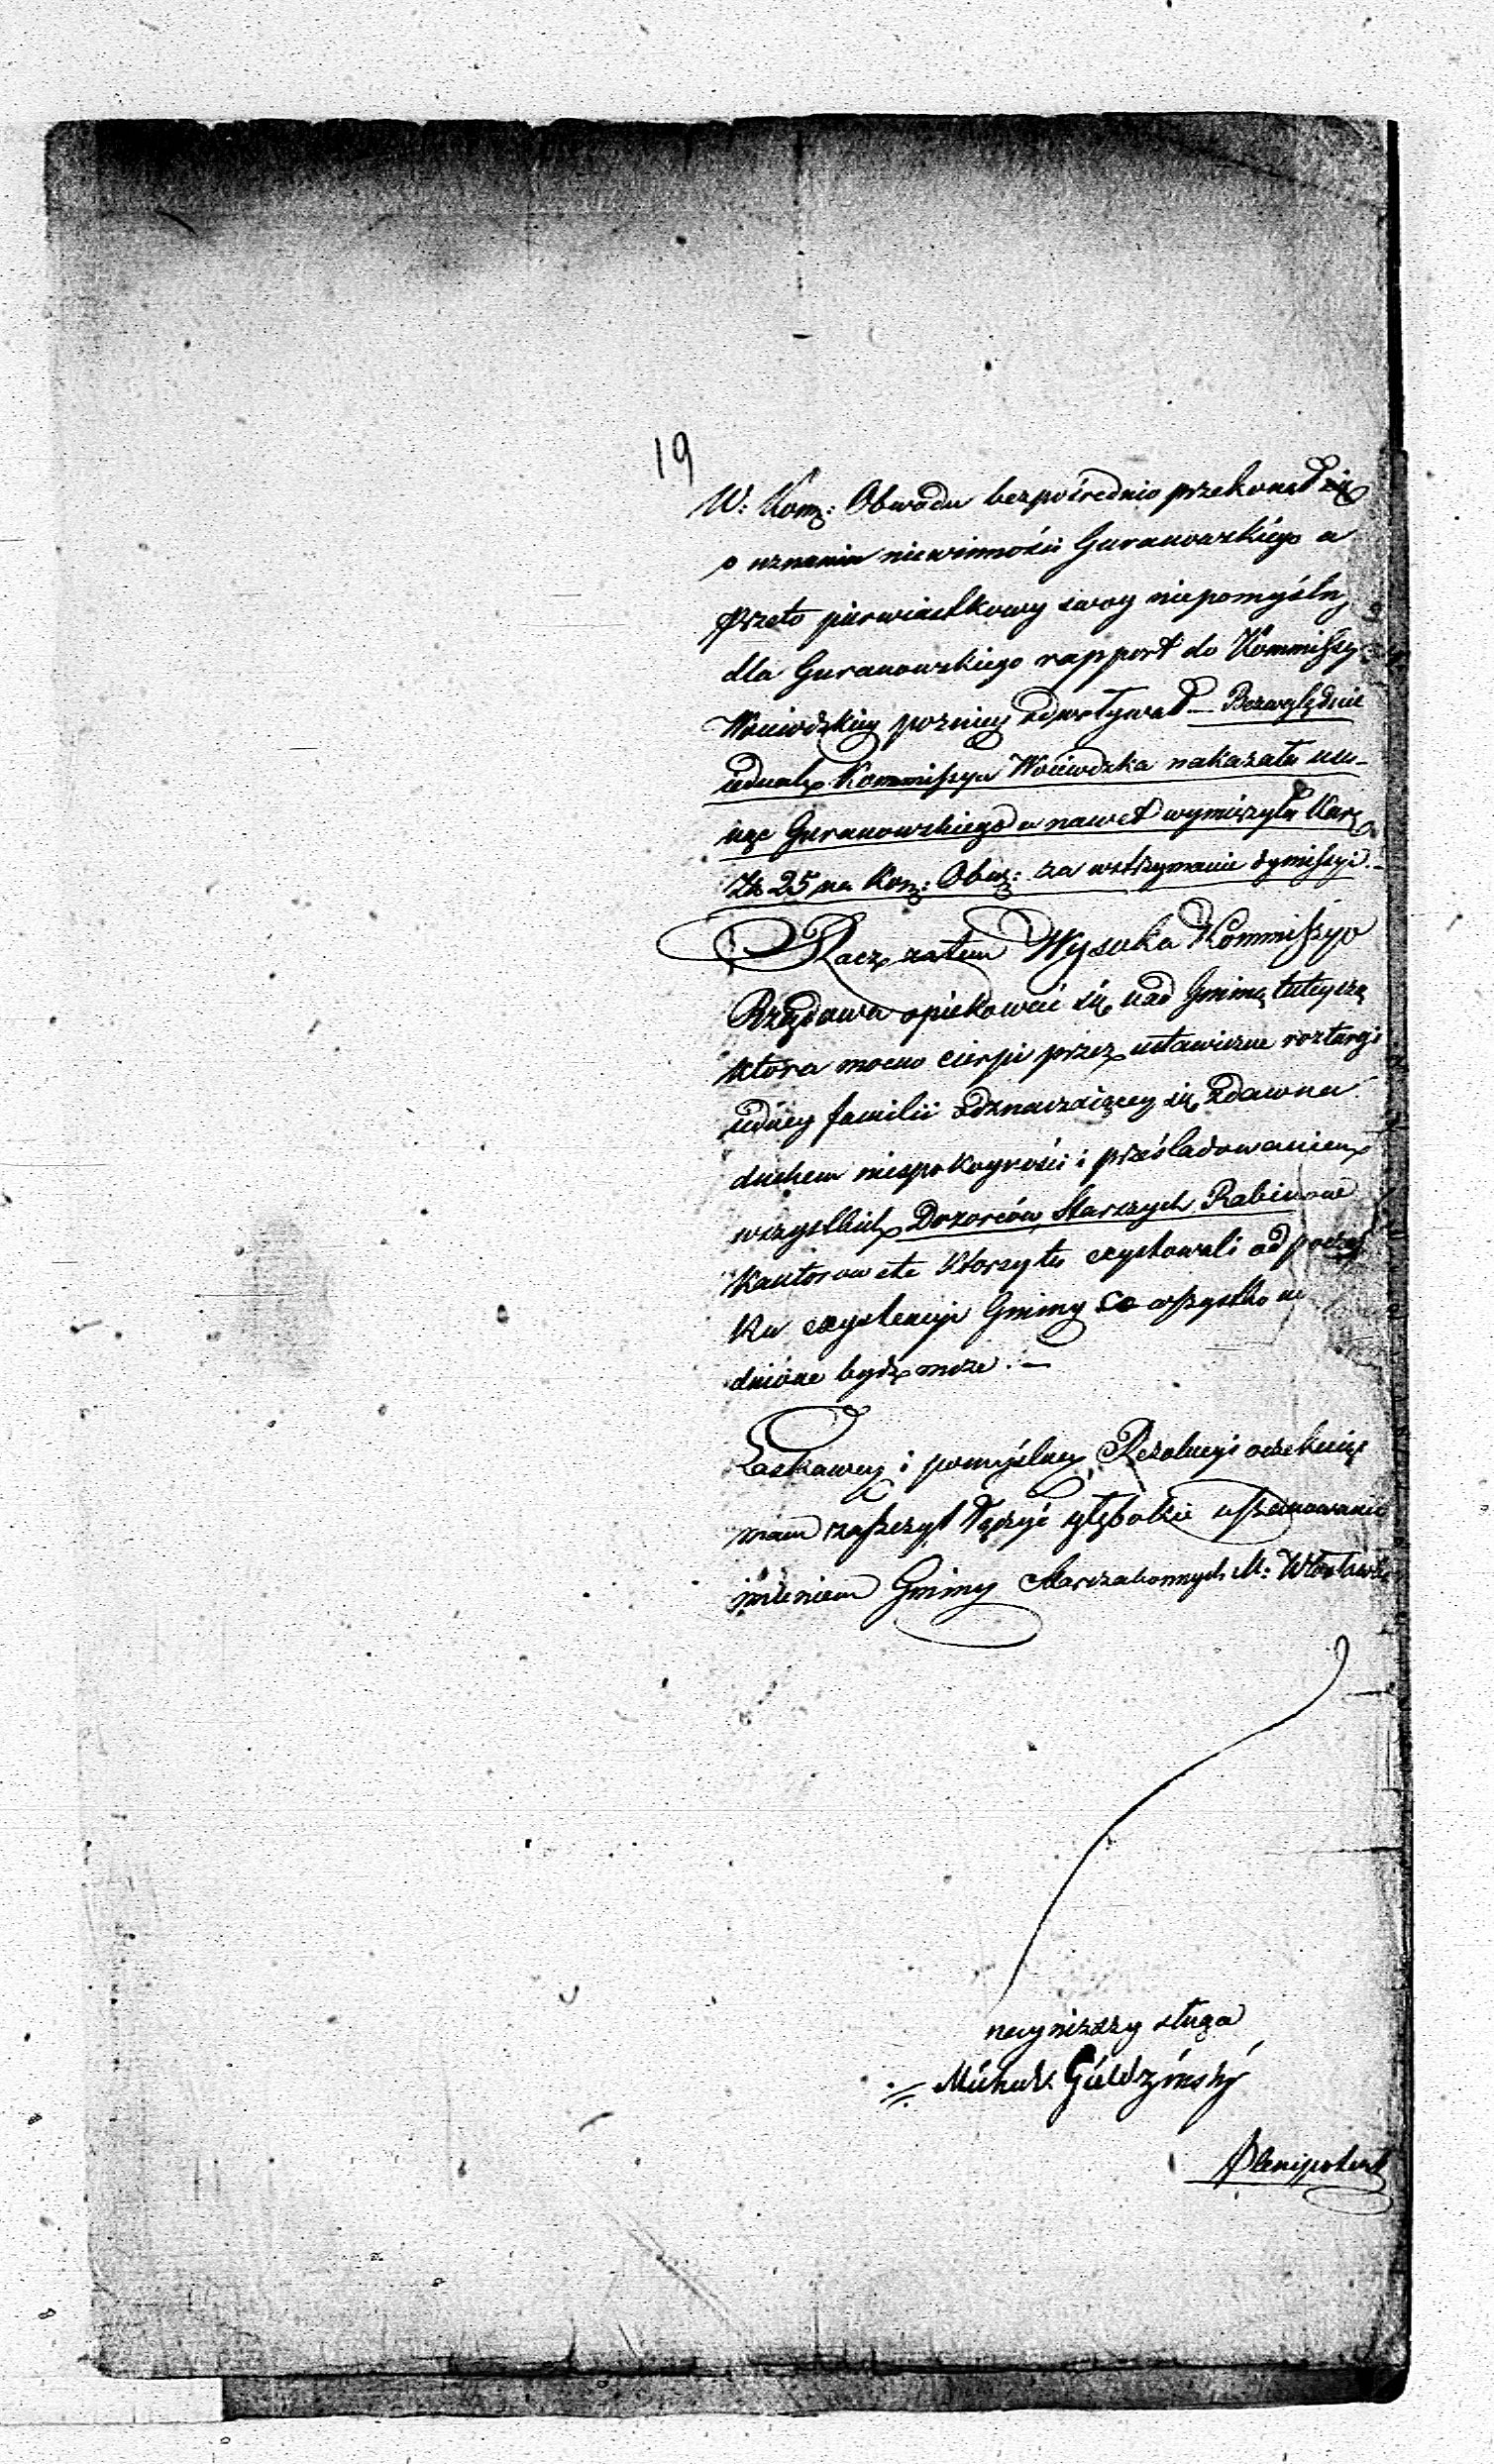 19
W: Kom: Obwodu bezpośrednio przekonał się
o uznaniu niewinności Guranowskiego a
przeto pierwiastkowy swoy niepomyślny
dla Guranowskiego rapport do Kommissyi
Woiewodzkiey poźniey odwoływał — Bezwzględnie
iednak Kommissya Woiewodzka nakazała usu-
nąć Guranowskiego a nawet wymierzyła Karę
Zł: 25 na Kom: Obw: za wstrzymanie dymissyi. —
Racz zatem Wysoka Kommissyo
Rządowa opiekować się nad Gminą tuteyszą
która mocno cierpi przez ustawiczne roztargi
iedney familii odznaczaiącey się zdawna
duchem niespokoyności i prześladowaniem
wszystkich Dozorców, Starszych, Rabinow
Kantorow etc którzy tu exystowali od począt
ku exystencyi Gminy co wszystko
dnione bydź może. —
Łaskawey i pomyślney Rezolucyi oczekuiąc
mam zaszczyt łączyć głębokie uszanowanie
imieniem Gminy Starozakonnych M: Włocławka
nayniższy sługa
Plenipotent